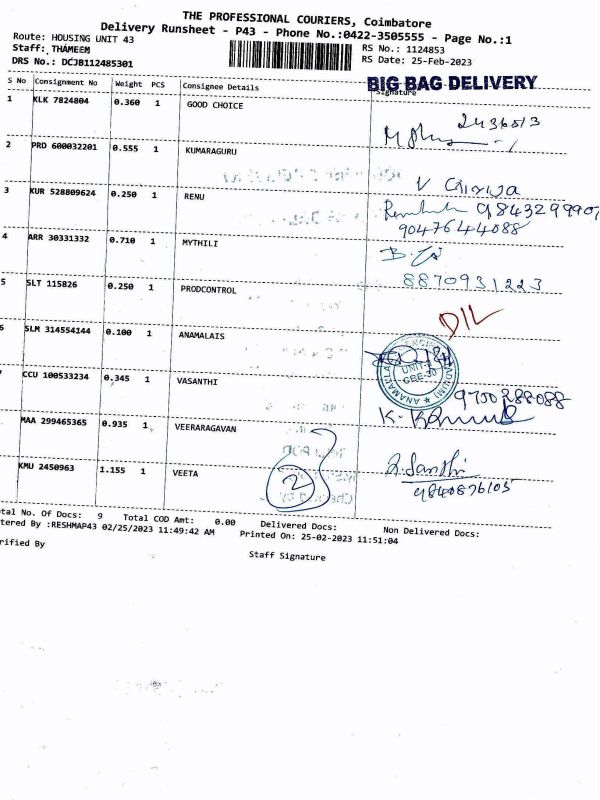 THE PROFESSIONAL COURIERS, Coimbatore
Delivery Runsheet - P43 - Phone No.:0422-3505555 - Page No.:1
Route: HOUSING UNIT 43
RS No.: 1124853
Staff: THAMEEM
RS Date: 25-Feb-2023
DRS No.: DCJB112485301
BIG BAG DELIVERY
S No Consignment No Weight PCS Consignee Details Signature
1 KLK 7824804 0.360 1 GOOD CHOICE
2436513
2 PRD 600032201 0.555 1 KUMARAGURU
3 KUR 528809624 0.250 1 RENU
9843299907
9047644088
4 ARR 30331332 0.710 1 MYTHILI
8870931223
5 SLT 115826 0.250 1 PRODCONTROL
D/L
6 SLM 314554144 0.100 1 ANAMALAIS
UNIT-2
CBE-30
CCU 100533234 0.345 1 VASANTHI
9750288088
MAA 299465365 0.935 1 VEERARAGAVAN
KMU 2450963 1.155 1 VEETA
2
R. Santhi
9840876105
tal No. Of Docs: 9 Total COD Amt: 0.00 Delivered Docs: Non Delivered Docs:
tered By :RESHMAP43 02/25/2023 11:49:42 AM Printed On: 25-02-2023 11:51:04
rified By
Staff Signature